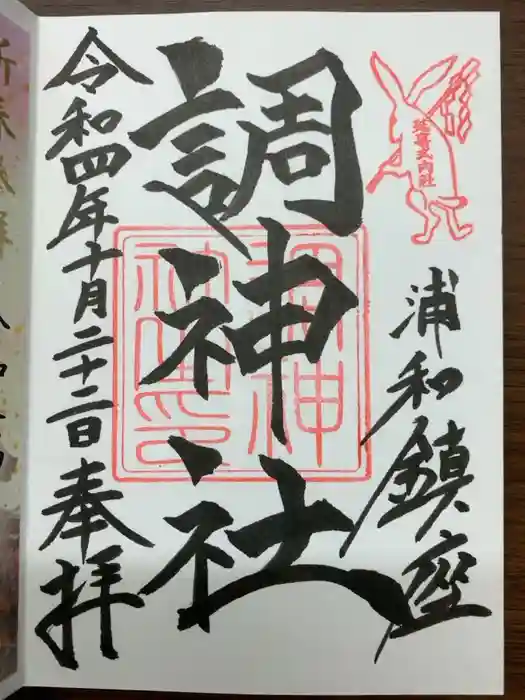 延喜式内社
浦和鎮座
調神社
調神社印
令和四年十月二十二日奉拝